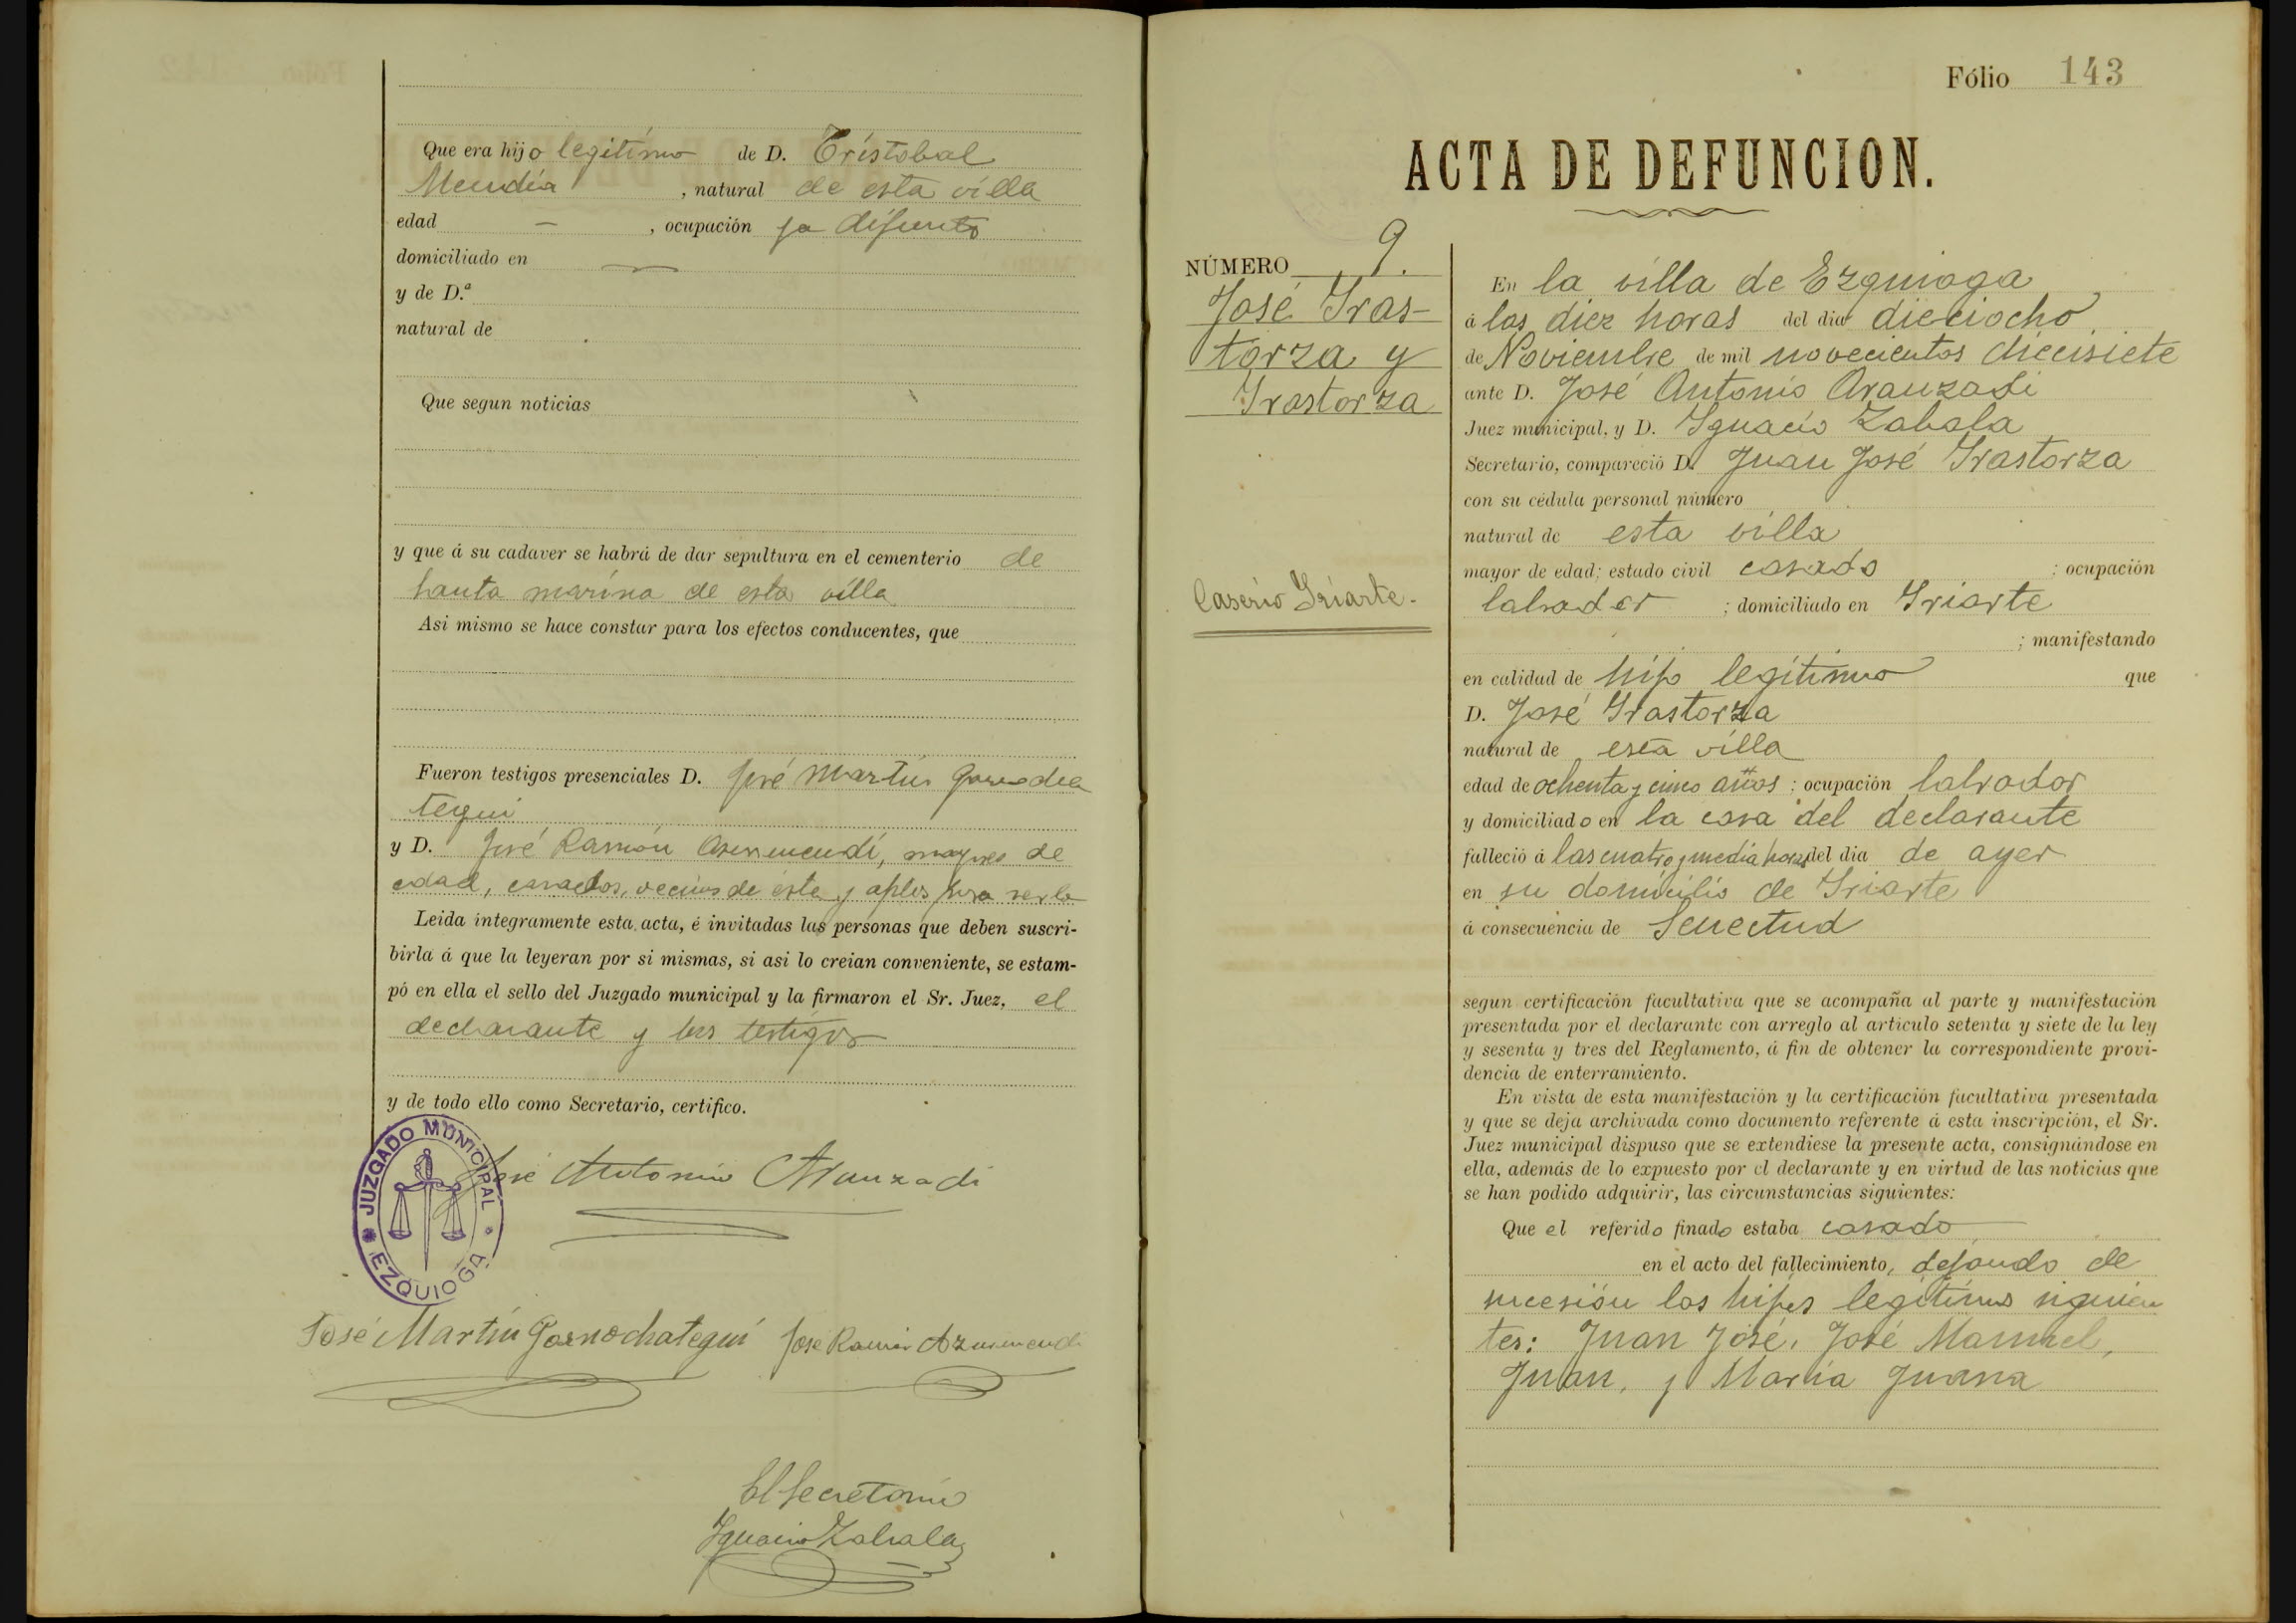 Que era hijo legítimo de D. Cristobal
Mendía, natural de esta villa
edad — , ocupación ya difunto
domiciliado en —
y de D.ª
natural de
Que segun noticias
y que á su cadaver se habrá de dar sepultura en el cementerio de
Santa marina de esta villa
Asi mismo se hace constar para los efectos conducentes, que
Fueron testigos presenciales D. José Martín
tegui
y D. José Ramón Azurmendi, mayores de
edad, casados, vecinos de ésta y para serlo
Leida integramente esta acta, é invitadas las personas que deben suscri-
birla á que la leyeran por si mismas, si asi lo creian conveniente, se estam-
pó en ella el sello del Juzgado municipal y la firmaron el Sr. Juez, el
declarante y los testigos
y de todo ello como Secretario, certifico.
JUZGADO MUNICIPAL * EZQUIOGA *
José Antonio Aranzadi
José Martín Gornochategui José Ramón Azurmendi
El Secretario
Ignacio Zabala
Fólio 143
ACTA DE DEFUNCION.
NÚMERO 9.
José Iras-
torza y
Irastorza
Caserío Iriarte.
En la villa de Ezquioga
á las diez horas del dia dieciocho
de Noviembre de mil novecientos diecisiete
ante D. José Antonio Aranzadi
Juez municipal, y D. Ignacio Zabala
Secretario, compareció D. Juan José Irastorza
con su cédula personal número
natural de esta villa
mayor de edad; estado civil casado ; ocupación
labrador ; domiciliado en Iriarte
; manifestando
en calidad de hijo legítimo que
D. José Irastorza
natural de esta villa
edad de ochenta y cinco años ; ocupación labrador
y domiciliado en la casa del declarante
falleció á las cuatro y media horas del dia de ayer
en su domicilio de Iriarte
á consecuencia de Senectud
segun certificación facultativa que se acompaña al parte y manifestación
presentada por el declarante con arreglo al articulo setenta y siete de la ley
y sesenta y tres del Reglamento, á fin de obtener la correspondiente provi-
dencia de enterramiento.
En vista de esta manifestación y la certificación facultativa presentada
y que se deja archivada como documento referente á esta inscripción, el Sr.
Juez municipal dispuso que se extendiese la presente acta, consignándose en
ella, además de lo expuesto por el declarante y en virtud de las noticias que
se han podido adquirir, las circunstancias siguientes:
Que el referido finado estaba casado
en el acto del fallecimiento, dejando de
sucesión los hijos legítimos siguien
tes: Juan José, José Manuel,
Juan, y María Juana